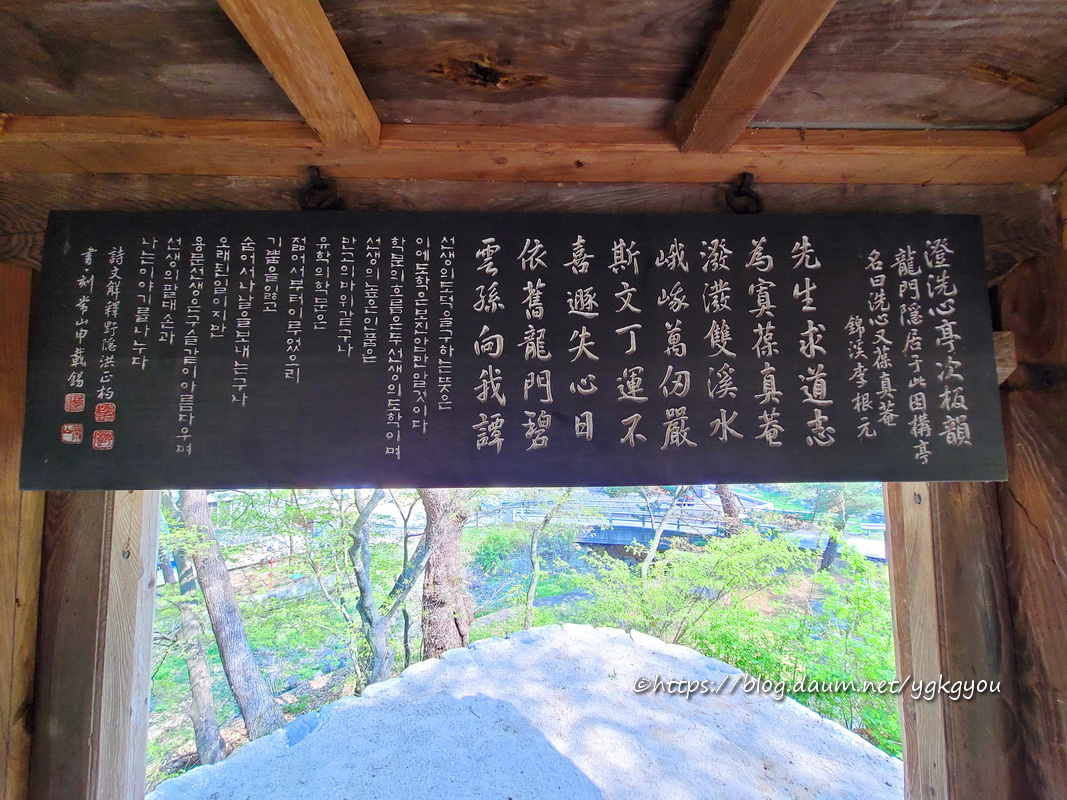 澄洗心亭次板韻
龍門隱居于此因構亭
名曰洗心又葆真菴
錦溪李根元
先生求道志
為寞葆真菴
潑潑雙溪水
峨峩萬仞嚴
斯文丁運不
喜遯失心日
依舊龍門碧
雲孫向我譚
선생의도덕을구하는뜻은
이에도학은보진안만알것이다
학문의흐름은두선생의도학이며
선생의높은인품은
만고의바위같구나
유학의학문은
젊어서부터이루었으리
기쁨을잃고
숨어서나날을보내는구나
오래된일이지만
용문선생은구슬같이아름다우며
선생의팔대손과
나는이야기를나누다
詩文解釋野隱洪正杓
書·刻常山申載錫
©https://blog.daum.net/ygkgyou